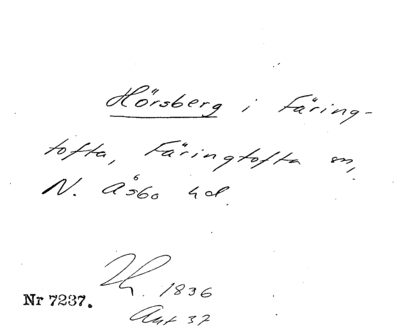 Hörsberg i Färing-
tofta, Färingtofta sn,
N. Åsbo hd.
Th. 1836
Nr 7237.
Ant 37